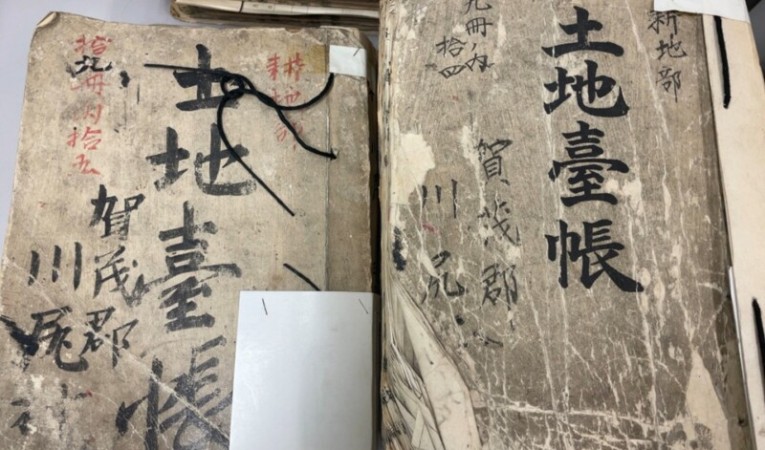 耕地部
土地臺帳
拾九冊内拾五
賀茂郡
川尻村
耕地部
土地臺帳
九冊ノ内
拾四
賀茂郡
川尻